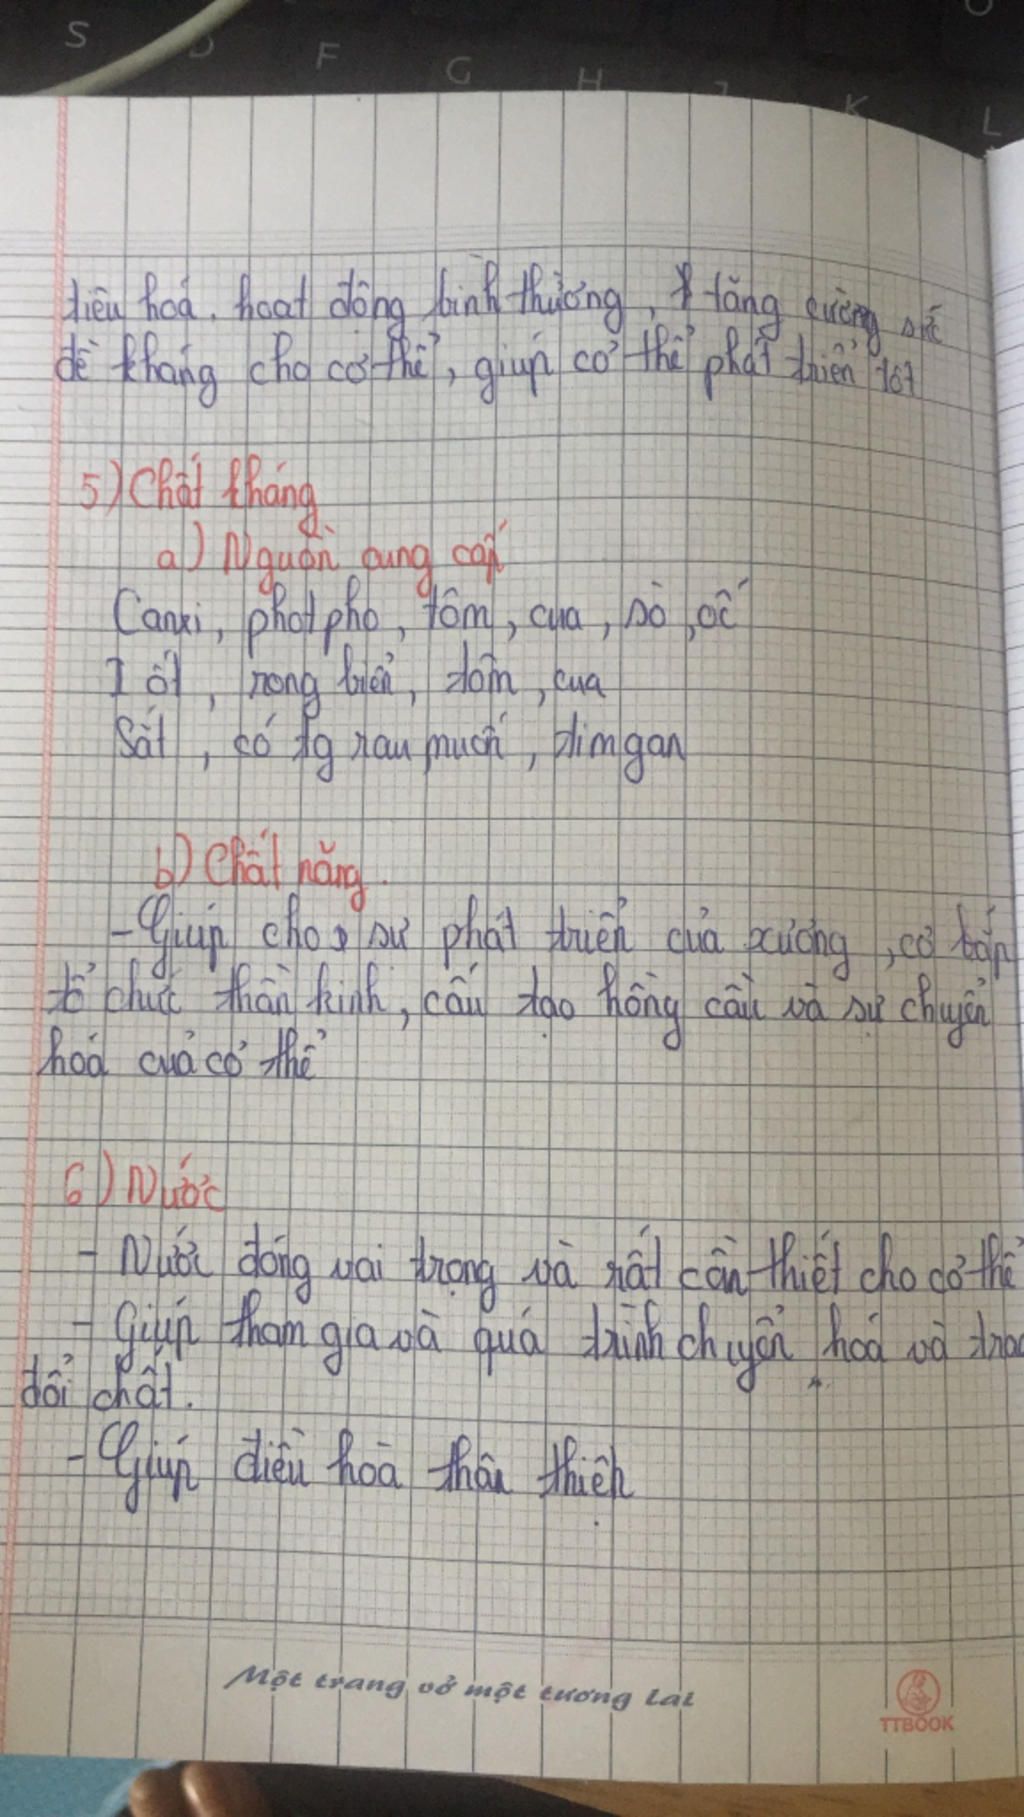 S D F G H J K L
tiêu hoá, hoạt động bình thường, tăng cường sức
đề kháng cho cơ thể, giúp cơ thể phát triển tốt
5) Chất kháng
a) Nguồn cung cấp
Canxi, photpho, tôm, cua, sò, ốc
I ốt, rong biển, tôm, cua
Sắt, có tg rau muốn, tim gan
b) Chất năng.
- Giúp cho sự phát triển của xương, cơ bắp
tổ chức thần kinh, cấu tạo hồng cầu và sự chuyển
hoá của cơ thể
6) Nước
- Nước đóng vai trọng và rất cần thiết cho cơ thể
- Giúp tham gia và quá trình chuyển hoá và trao
đổi chất.
- Giúp điều hoà thân thiên
Một trang vở một tương lai
TTBOOK